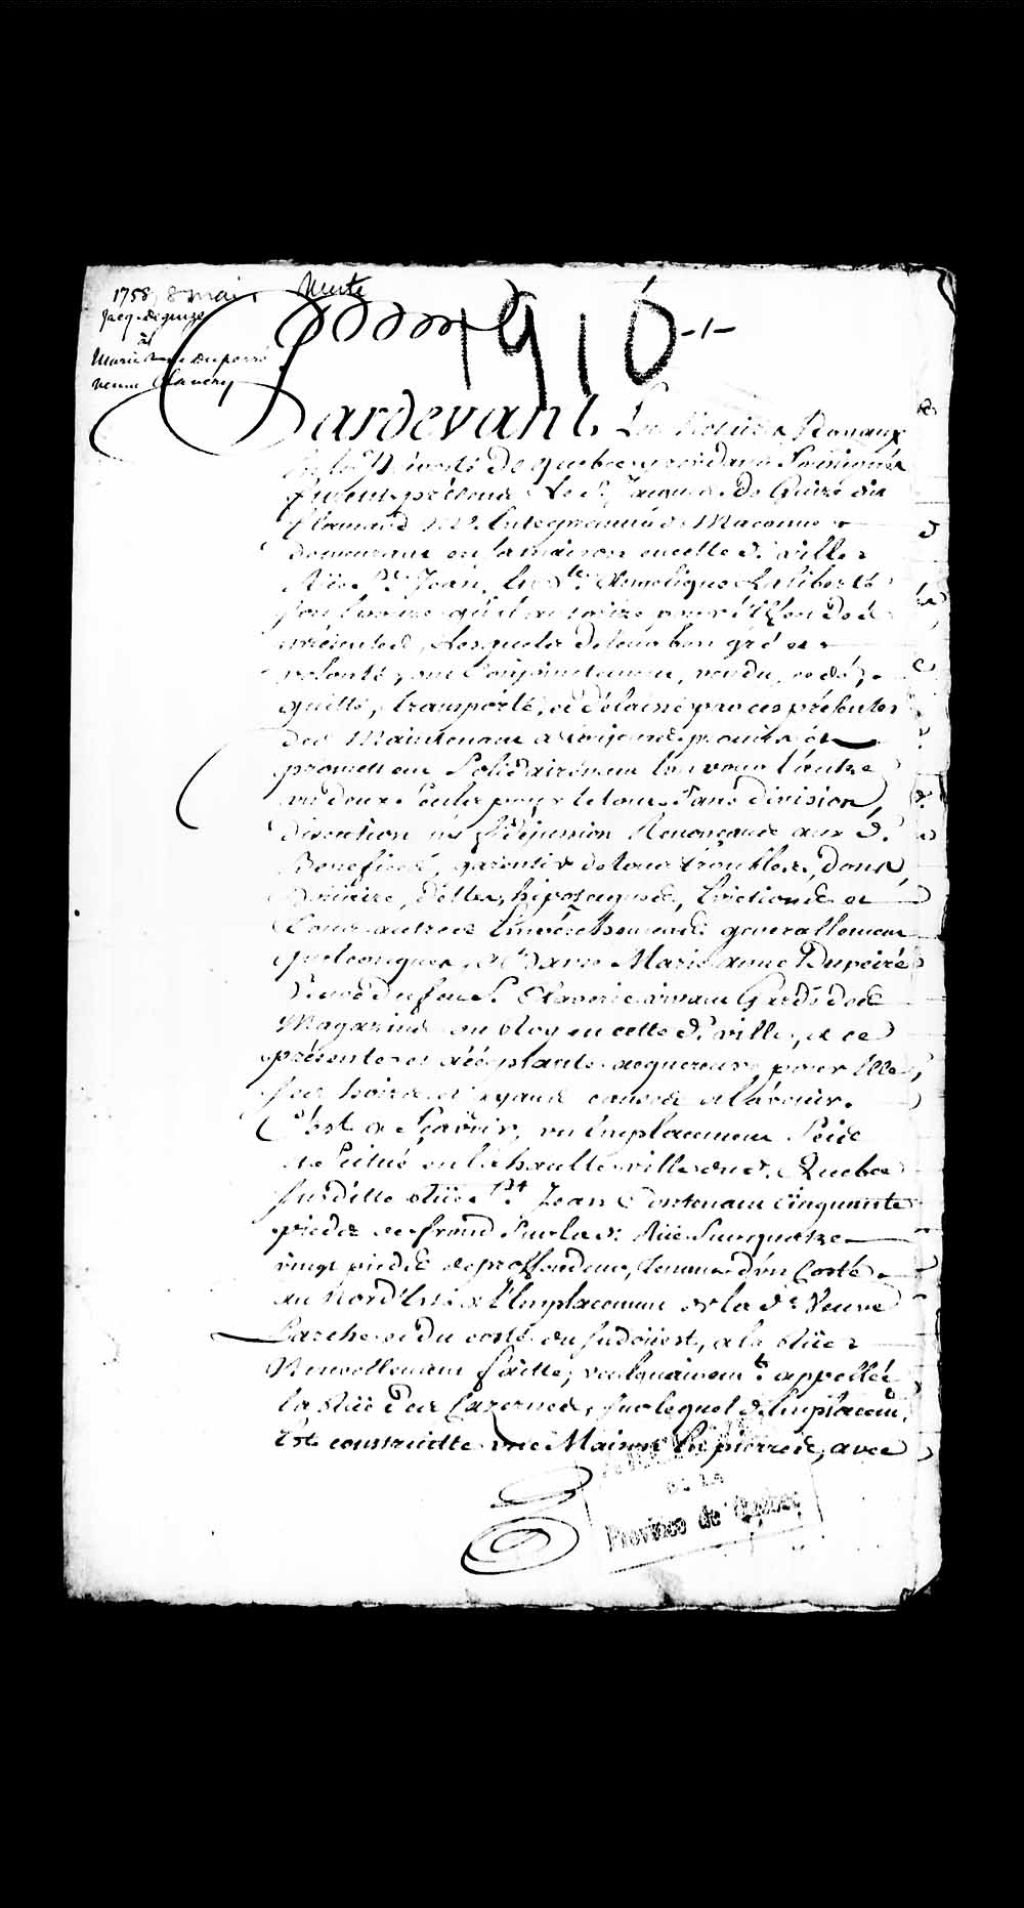 1758, 8 mai Vente
Jacq. deguize
à
Marie anne duperré
veuve Claverie
1910 -1-
Pardevant Les Notaires Royaux
de la Prévosté de Quebec y residans Soussignés
furent présents Le Sr. Jacques De Guize dit
flamand Me. Entrepreneur de Maconne
demeurant en sa maison en cette de. ville
Rüe St. Jean, & De. Angelique Laliberté
Son Epouse qu'il autorize pour l'Effet des
présentes, Lesquels de leur bon gré et
volonté, ont Conjointement, vendu, cedé,
quitté, transporté, et délaissé par ces présentes
des Maintenant à toujours, promis et
promettent Solidairement l'un pour l'autre
un deux Seuls pour le tout Sans division
discution ni fidejussion Renonçants aux d.
Benefices, garentir de tous troubles, dons,
Doüaire, dettes, hipoteques, Evictions et
Tous autres Empéchements generallement
quelconques, à De. Marie anne Dupéiré
Veuve du feu S. Claverie vivant Garde des
Magazins du Roy en cette de. ville, à ce
présente et accéptante acquereure pour Elle,
ses hoirs et ayans cause à l'avenir.
C'est a Sçavoir, un Emplacement Scis
et Situé en la haulte ville dud. Quebec
Susditte Rüe St. Jean Contenant cinquante
pieds de front Sur la de. Rüe Sur quatre
vingt pieds de proffondeur, tenant d'un Costé
au Nord'Est à l'Emplacement de la de. Veuve
Larche et du costé du Sudöüest, à la Rüe
Nouvellement faitte, vulguairemt. appellée
la Rüe Des Cazernes, Sur lequel d. Emplacemt.
Est construitte une Maison En pierres, avec
DE LA
Province de Québec